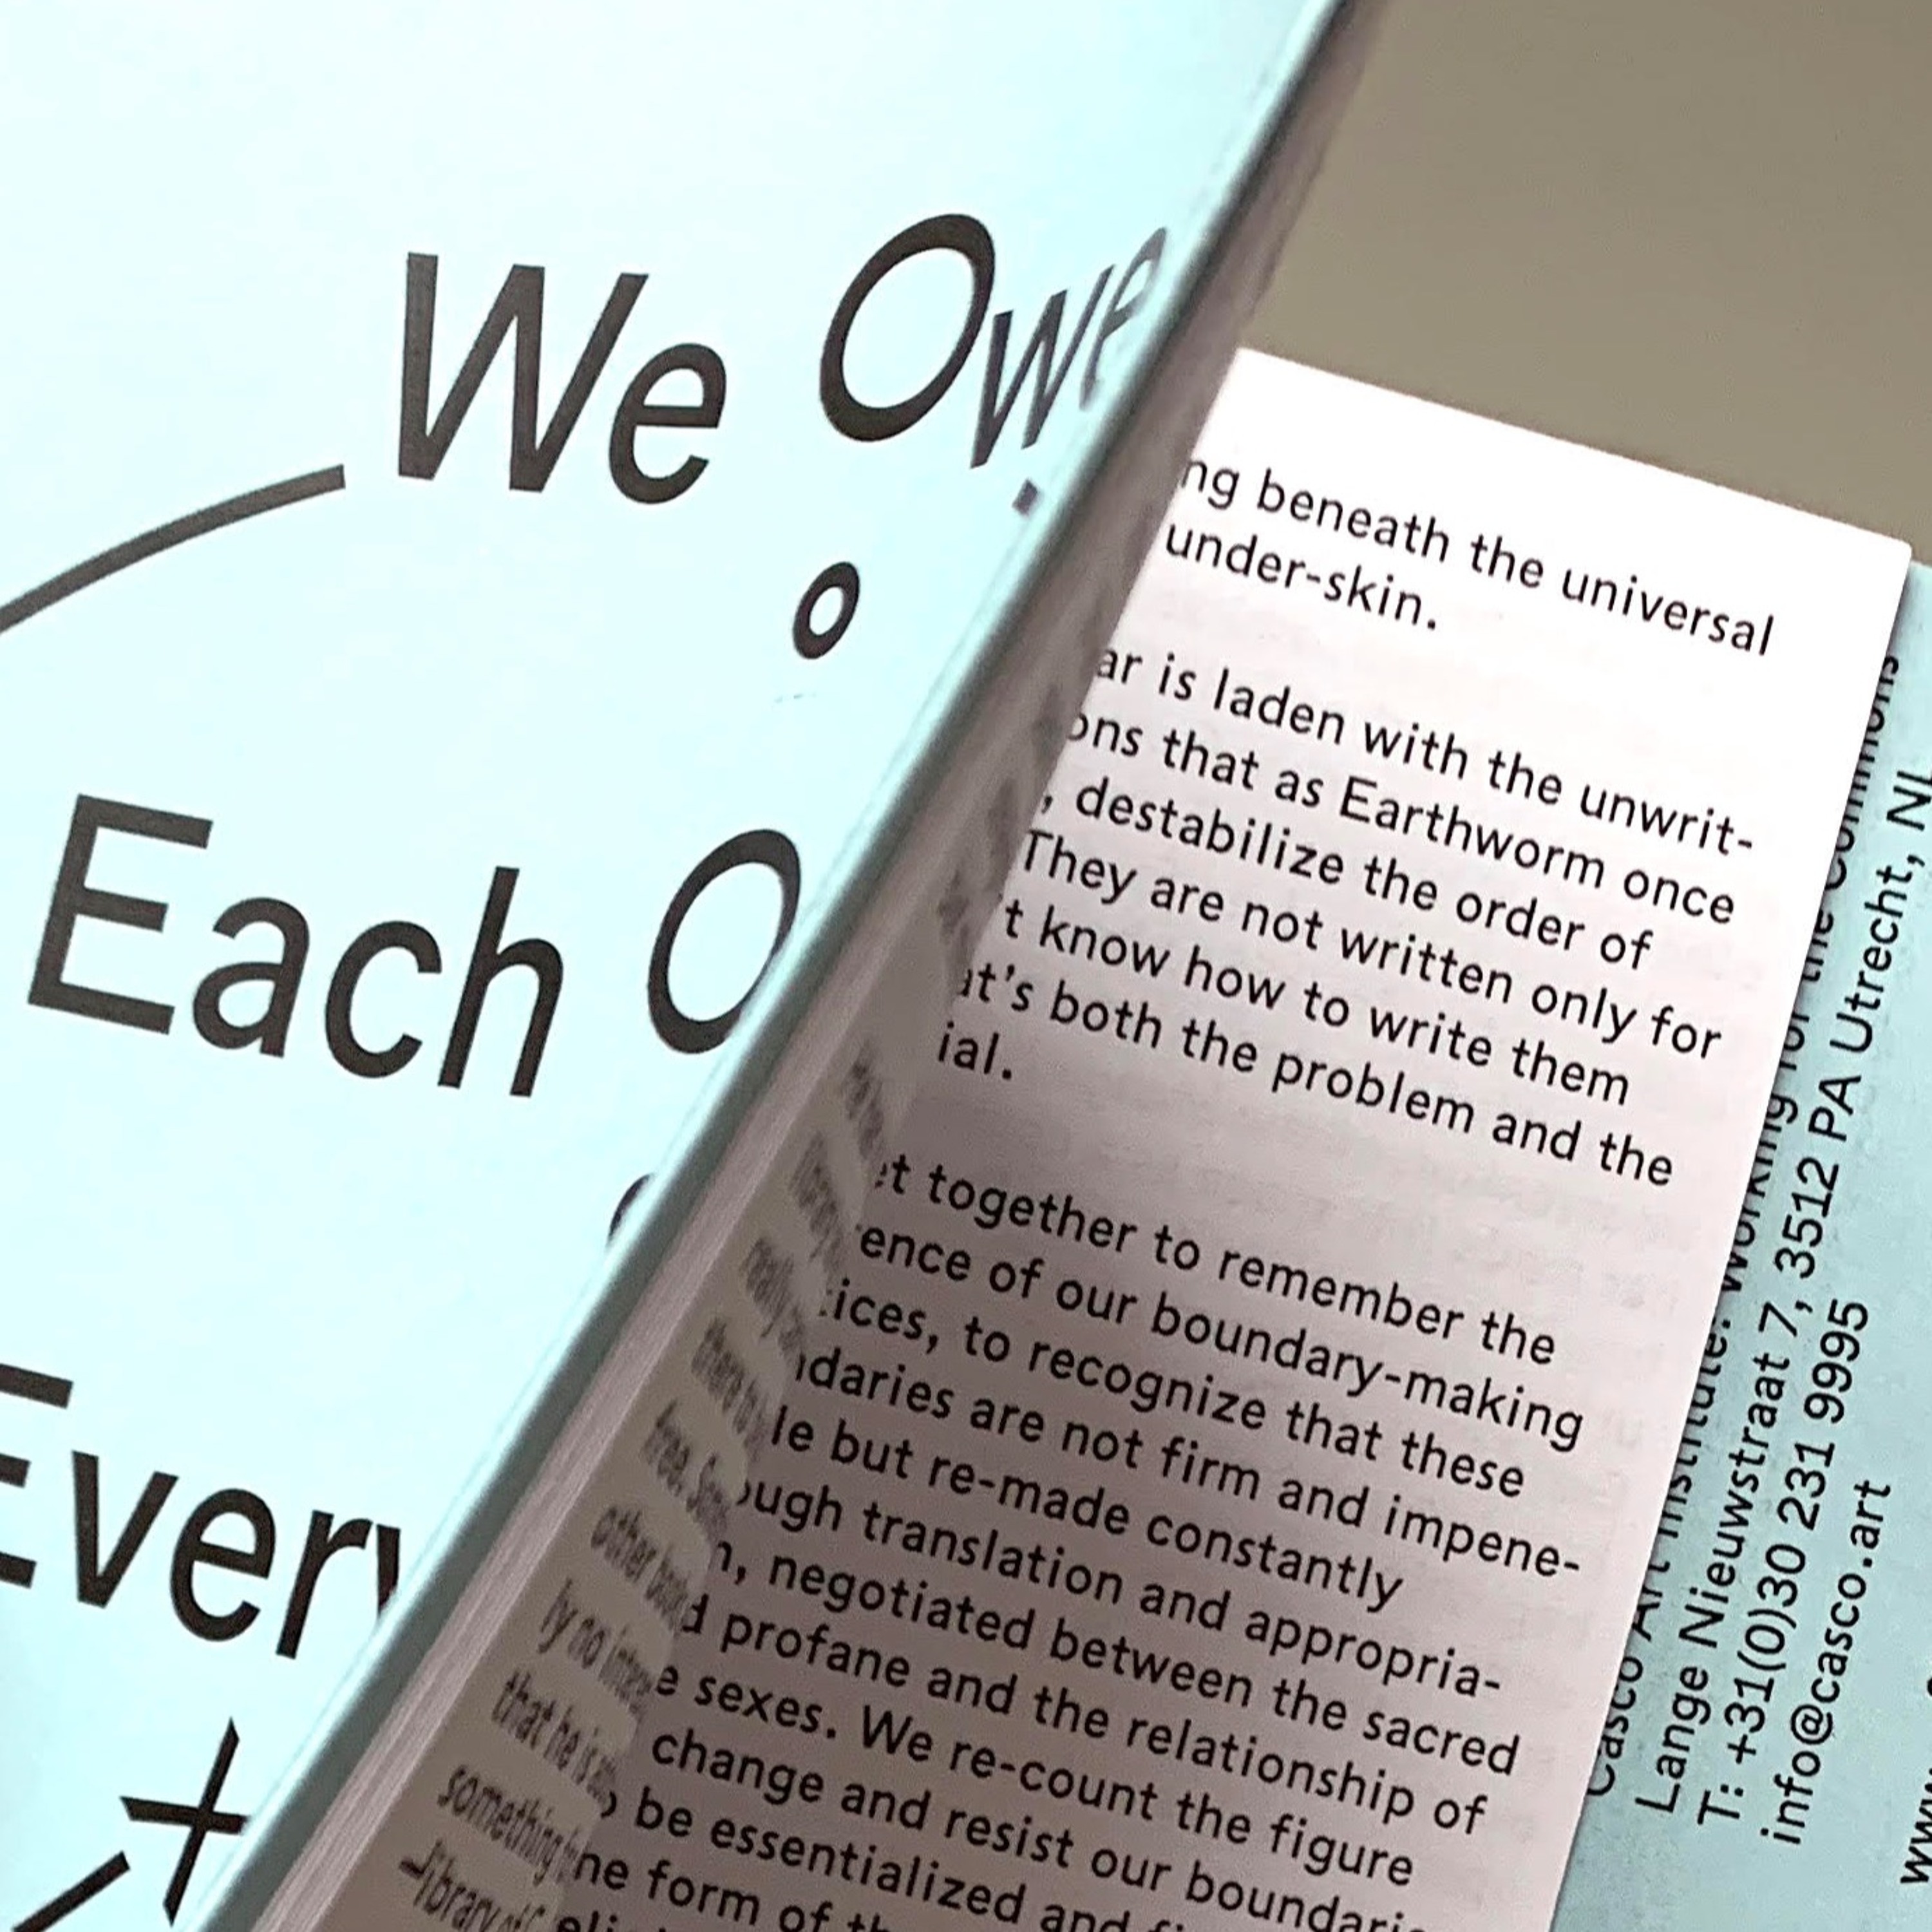 We Owe
Each O
Every
+
ng beneath the universal
under-skin.
ar is laden with the unwrit-
ons that as Earthworm once
, destabilize the order of
They are not written only for
't know how to write them
at's both the problem and the
ial.
et together to remember the
ence of our boundary-making
ices, to recognize that these
ndaries are not firm and impene-
le but re-made constantly
ough translation and appropria-
n, negotiated between the sacred
d profane and the relationship of
e sexes. We re-count the figure
change and resist our boundari
be essentialized and
ne form of
there
tree.
other
ly no
that he is
something
Casco Art Institute: Working for the Commons
Lange Nieuwstraat 7, 3512 PA Utrecht, NL
T: +31(0)30 231 9995
info@casco.art
www